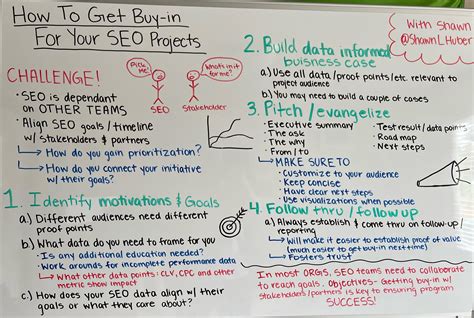 How To Get Buy-in
For Your SEO Projects
With Shawn
@ShawnLHuber
CHALLENGE!
Pick me!
What's in it for me?
SEO
Stakeholder
· SEO is dependant
on OTHER TEAMS
· Align SEO goals/timeline
w/ Stakeholders & partners
How do you gain prioritization?
How do you connect your initiative
w/ their goals?
1. Identify motivations & Goals
a) Different audiences need different
proof points
b) What data do you need to frame for you
· Is any additional education needed?
· Work arounds for incomplete performance data
What other data points: CLV, CPC and other
metric show impact
c) How does your SEO data align w/ their
goals or what they care about?
2. Build data informed
buisness case
a) Use all data/proof points/etc. relevant to
project audience
b) You may need to build a couple of cases
3. Pitch/evangelize
· Executive summary
· The ask
· The why
· From/to
· Test result/data points
· Road map
· Next steps
MAKE SURE TO
· Customize to your audience
· Keep concise
· Have clear next steps
· Use visualizations when possible
4. Follow thru/follow up
a) Always establish & come thru on follow-up/
reporting
Will make it easier to establish proof of value
(much easier to get buy-in next time)
Fosters trust
In most ORGS, SEO teams need to collaborate
to reach goals. Objectives- Getting buy-in w/
stakeholders/partners is key to ensuring program
SUCCESS!